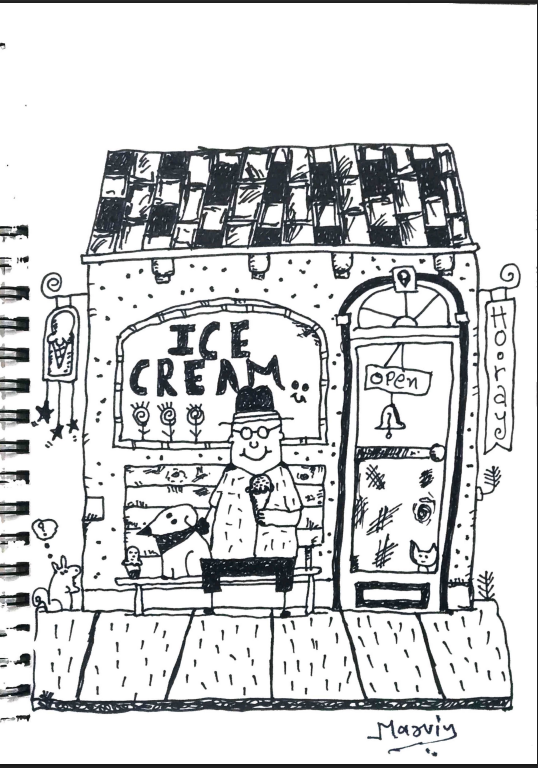 ICE
CREAM
open
Hooray
?
Marvin